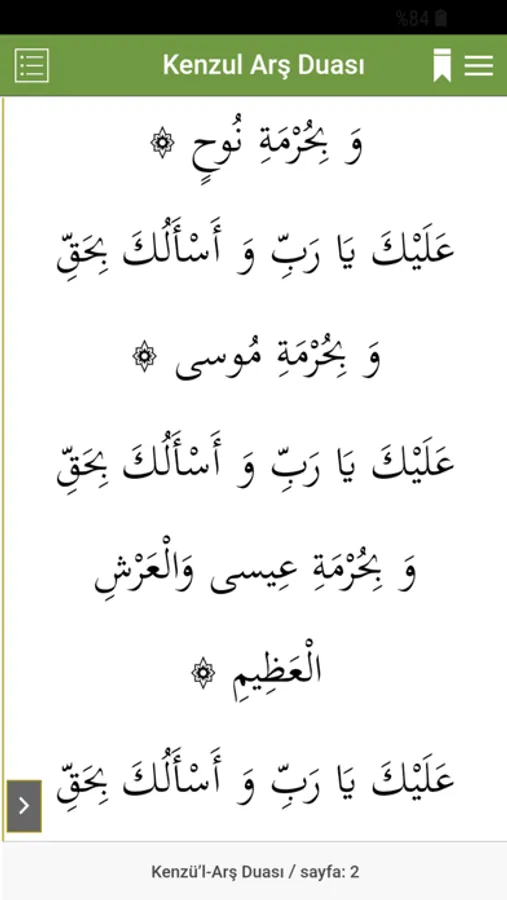 %84
Kenzul Arş Duası
وَ بِحُرْمَةِ نُوحٍ ۞
عَلَيْكَ يَا رَبِّ وَ أَسْأَلُكَ بِحَقِّ
وَ بِحُرْمَةِ مُوسى ۞
عَلَيْكَ يَا رَبِّ وَ أَسْأَلُكَ بِحَقِّ
وَ بِحُرْمَةِ عِيسى وَالْعَرْشِ
الْعَظِيمِ ۞
عَلَيْكَ يَا رَبِّ وَ أَسْأَلُكَ بِحَقِّ
Kenzü’l-Arş Duası / sayfa: 2